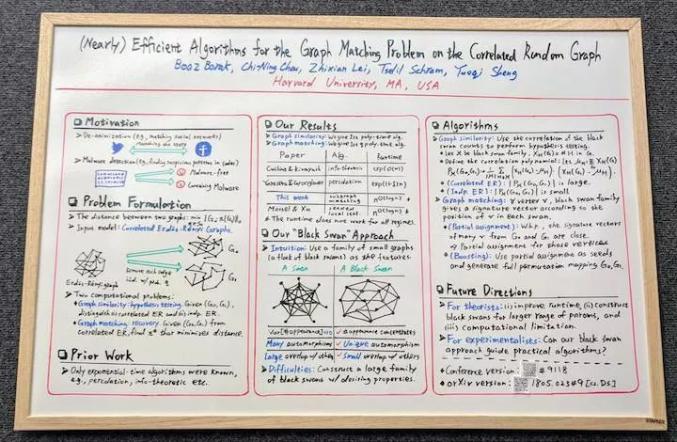 (Nearly) Efficient Algorithms for the Graph Matching Problem on the Correlated Random Graph
Boaz Barak, Chi-Ning Chou, Zhixian Lei, Tselil Schramm, Yueqi Sheng
Harvard University, MA, USA
Motivation
De-anonymization (e.g., matching social networks)
Malware detection (e.g., finding suspicious patterns in codes)
Malware-free
Containing Malware
Problem Formulation
The distance between two graphs: min
Input model: Correlated Erdős-Rényi Graphs.
G₀
G₁
Erdős-Rényi graph
Two computational problems:
Graph similarity: hypothesis testing. Given (G₀, G₁),
distinguish correlated ER and indep. ER.
Graph matching: recovery. Given (G₀, G₁) from
correlated ER, find that minimizes distance.
Prior Work
Only exponential-time algorithms were known,
e.g., percolation, info-theoretic etc.
Our Results
Graph similarity: We give 1st poly-time alg.
Graph matching: We give 1st poly-time alg.
Paper Alg. Runtime
Cullina & Kiyavash info-theoretic
Yartseva & Grossglauser percolation
This work subgraph matching
Mossel & Xu seeded local stat.
The runtime does not work for all regimes.
Our "Black Swan" Approach
Intuition: Use a family of small graphs
(a flock of black swans) as the features.
A Swan A Black Swan
appearance concentrates
Many automorphisms Unique automorphism
Large overlap w/ others Small overlap w/ others
Difficulties: Construct a large family
of black swans w/ desiring properties.
Algorithms
Graph similarity: Use the correlation of the black
swan counts to perform hypothesis testing.
Let be black swan family,
Define the correlation polynomial:
(Correlated ER): is large.
(Indep. ER): is small.
Graph matching: vertex v, black swan family
gives a signature vector according to the
position of v in each swan.
(Partial assignment): the signature vectors
of many v from G₀ and G₁ are close.
Partial assignment for those vertices
(Boosting): Use partial assignment as seeds
and generate full permutation mapping
Future Directions
For theorists: (i) improve runtime, (ii) construct
black swans for larger range of params, and
(iii) computational limitation.
For experimentalists: Can our black swan
approach guide practical algorithms?
Conference version: #9118
arXiv version: 1805.02349 [cs.DS]